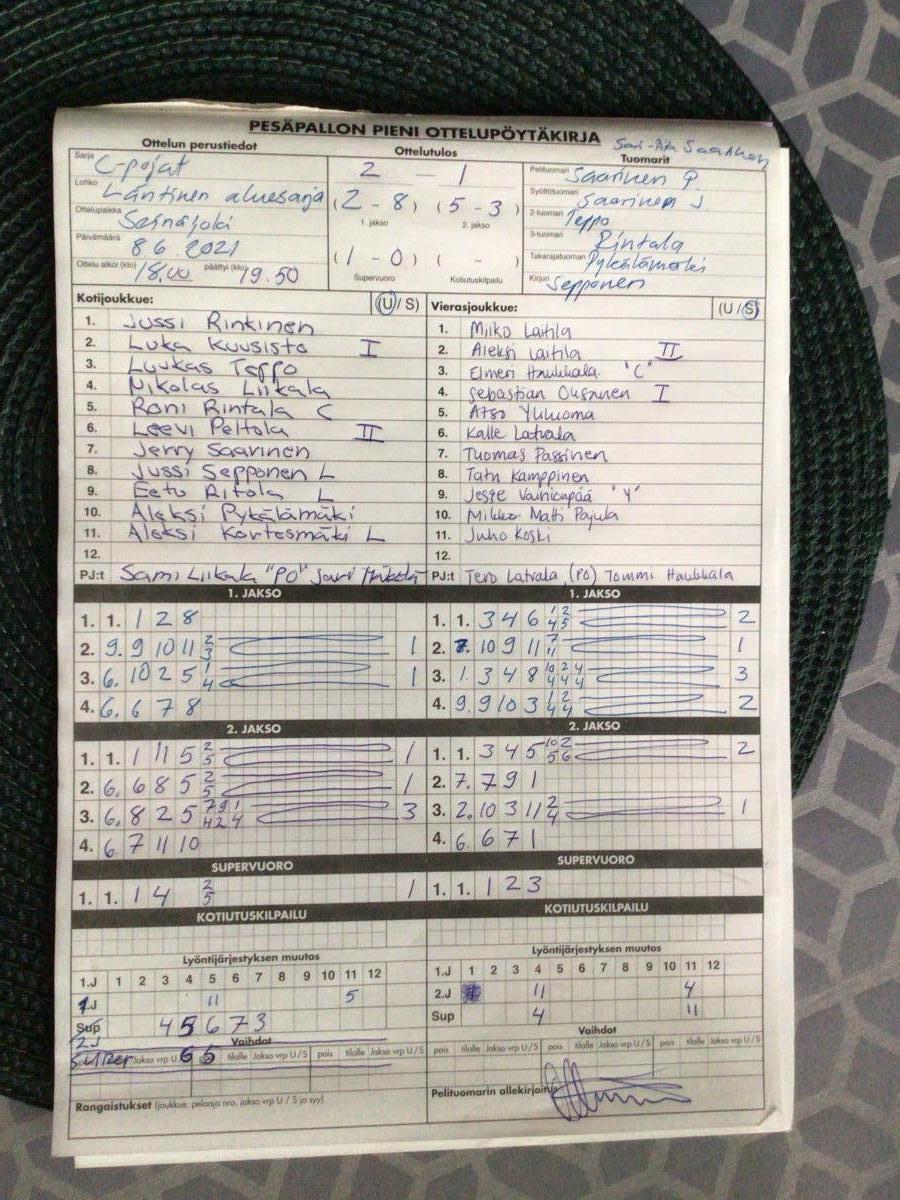 PESÄPALLON PIENI OTTELUPÖYTÄKIRJA
Ottelun perustiedot Ottelutulos Tuomarit
Sarja C-pojat
2 - 1
Pelituomari Saarinen P.
Lohko Läntinen aluesarja
(2 - 8) (5 - 3)
1. jakso 2. jakso
Syöttötuomari Saarinen J.
Ottelupaikka Seinäjoki
2-tuomari Teppo
Päivämäärä 8 6. 2021
(1 - 0) ( - )
Supervuoro Kotiutuskilpailu
3-tuomari Rintala
Takarajatuomari Pykälämäki
Ottelu alkoi (klo) 18.00 päättyi (klo) 19.50
Kirjuri Sepponen
Kotijoukkue: (U / S)
1. Jussi Rinkinen
2. Luka Kuusisto I
3. Luukas Teppo
4. Nikolas Liikala
5. Roni Rintala C
6. Leevi Peltola II
7. Jerry Saarinen
8. Jussi Sepponen L
9. Eetu Ritola L
10. Aleksi Pykälämäki
11. Aleksi Kortesmäki L
12.
PJ:t Sami Liikala "PO" Jari
Vierasjoukkue: (U / S)
1. Miiko Laitila
2. Aleksi Laitila II
3. Elmeri Haukkala "C"
4. Sebastian I
5. Atso
6. Kalle Latvala
7. Tuomas Passinen
8. Tatu Kamppinen
9. Jesse Vainionpää "Y"
10. Mikko-Matti Pajula
11. Juho Koski
12.
PJ:t Tero Latvala (PO) Tommi Haukkala
1. JAKSO
1. 1. 1 2 8
2. 9. 9 10 11 2/3 1
3. 6. 10 2 5 1/4 1
4. 6. 6 7 8
1. JAKSO
1. 1. 3 4 6 1/4 2/5 2
2. 7. 10 9 11 7/11 1
3. 1. 3 4 8 10/4 2/4 4/4 3
4. 9. 9 10 3 1/4 2/4 2
2. JAKSO
1. 1. 1 11 5 2/5 1
2. 6. 6 8 5 2/5 1
3. 6. 8 2 5 7/4 9/2 1/4 3
4. 6 7 11 10
2. JAKSO
1. 1. 3 4 5 10/5 2/6 2
2. 7. 7 9 1
3. 2. 10 3 11 2/4 1
4. 6. 6 7 1
SUPERVUORO
1. 1. 1 4 2/5 1
SUPERVUORO
1. 1. 1 2 3
KOTIUTUSKILPAILU
KOTIUTUSKILPAILU
Lyöntijärjestyksen muutos
1.J 1 2 3 4 5 6 7 8 9 10 11 12
1.J 11 5
Sup 3 4 5 6 7 3
2.J
Super 6 5
Lyöntijärjestyksen muutos
1.J 1 2 3 4 5 6 7 8 9 10 11 12
2.J 11 4
Sup 4 11
Vaihdot
Jakso vrp U / S tilalle Jakso vrp U / S pois tilalle Jakso vrp U / S
Vaihdot
pois tilalle Jakso vrp U / S pois tilalle Jakso vrp U / S pois tilalle Jakso vrp U / S
Rangaistukset (joukkue, pelaaja nro, jakso vrp U / S ja syy)
Pelituomarin allekirjoitus